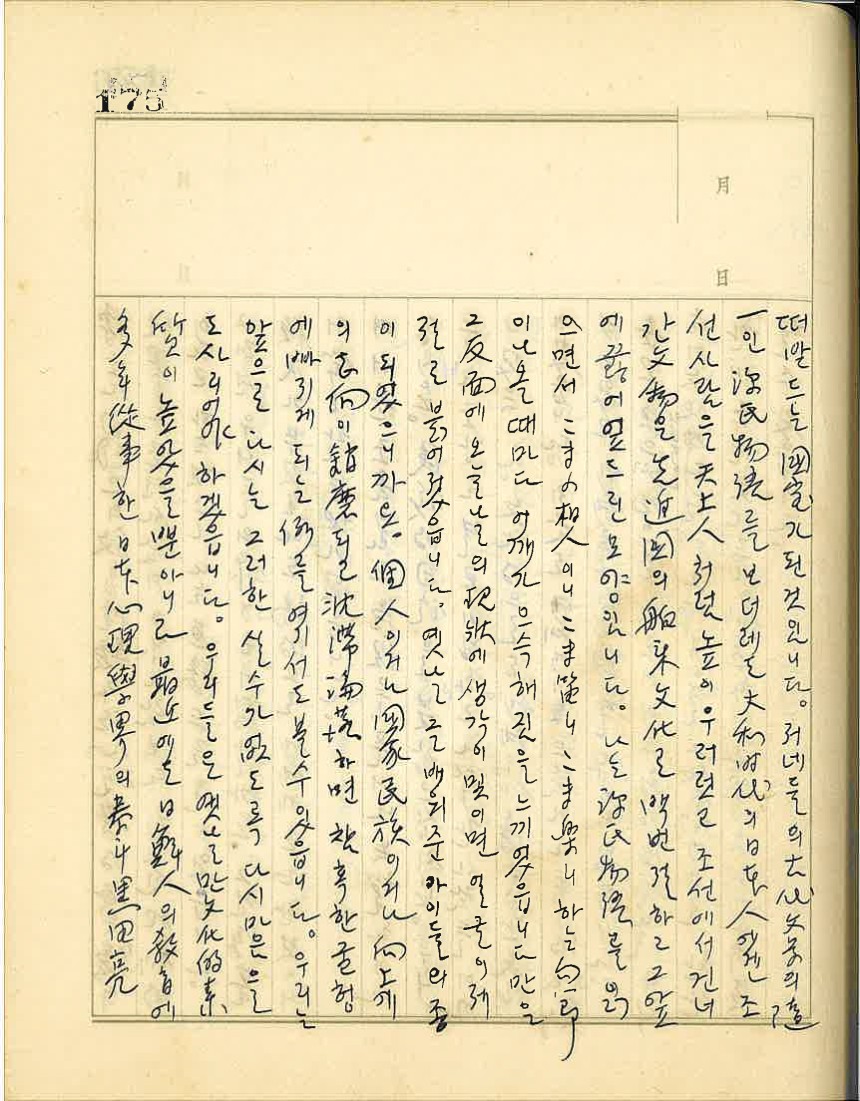 175
月
日
떠받드는 國宝가 된 것입니다. 저네들의 古代文学의
一인 源氏物語를 보더래도 大和時代의 日本人에겐 조
선사람은 天上人처럼 높이 우러렀고 조선에서 건너
간 文物은 先進国의 舶来文化로 백번 절하고 그 앞
에 꿇어 엎드린 모양입니다. 나는 源氏物語를 읽
으면서 こまの相人이니 こま笛니 こま樂니 하는 句節
이 나올 때마다 어깨가 으슥해짐을 느끼었읍니다만은
그 反面에 오늘날의 現狀에 생각이 및이면 얼굴이 제
절로 붉어졌읍니다. 옛날 글 배워준 아이들의 종
이 되었으니까요. 個人이거나 國家民族이거나 向上에
의 志向이 銷磨되고 沈滯 하면 참혹한 굴헝
에 빠지게 되는 例를 여기서도 볼 수 있읍니다. 우리는
앞으로 다시는 그러한 실수가 없도록 다시 마음을
도사리어야 하겠읍니다. 우리들은 옛날만 文化的素
質이 높았을 뿐 아니라 最近에도 日鮮人의 敎育에
多年 從事한 日本 心理學界의 泰斗 黑田亮